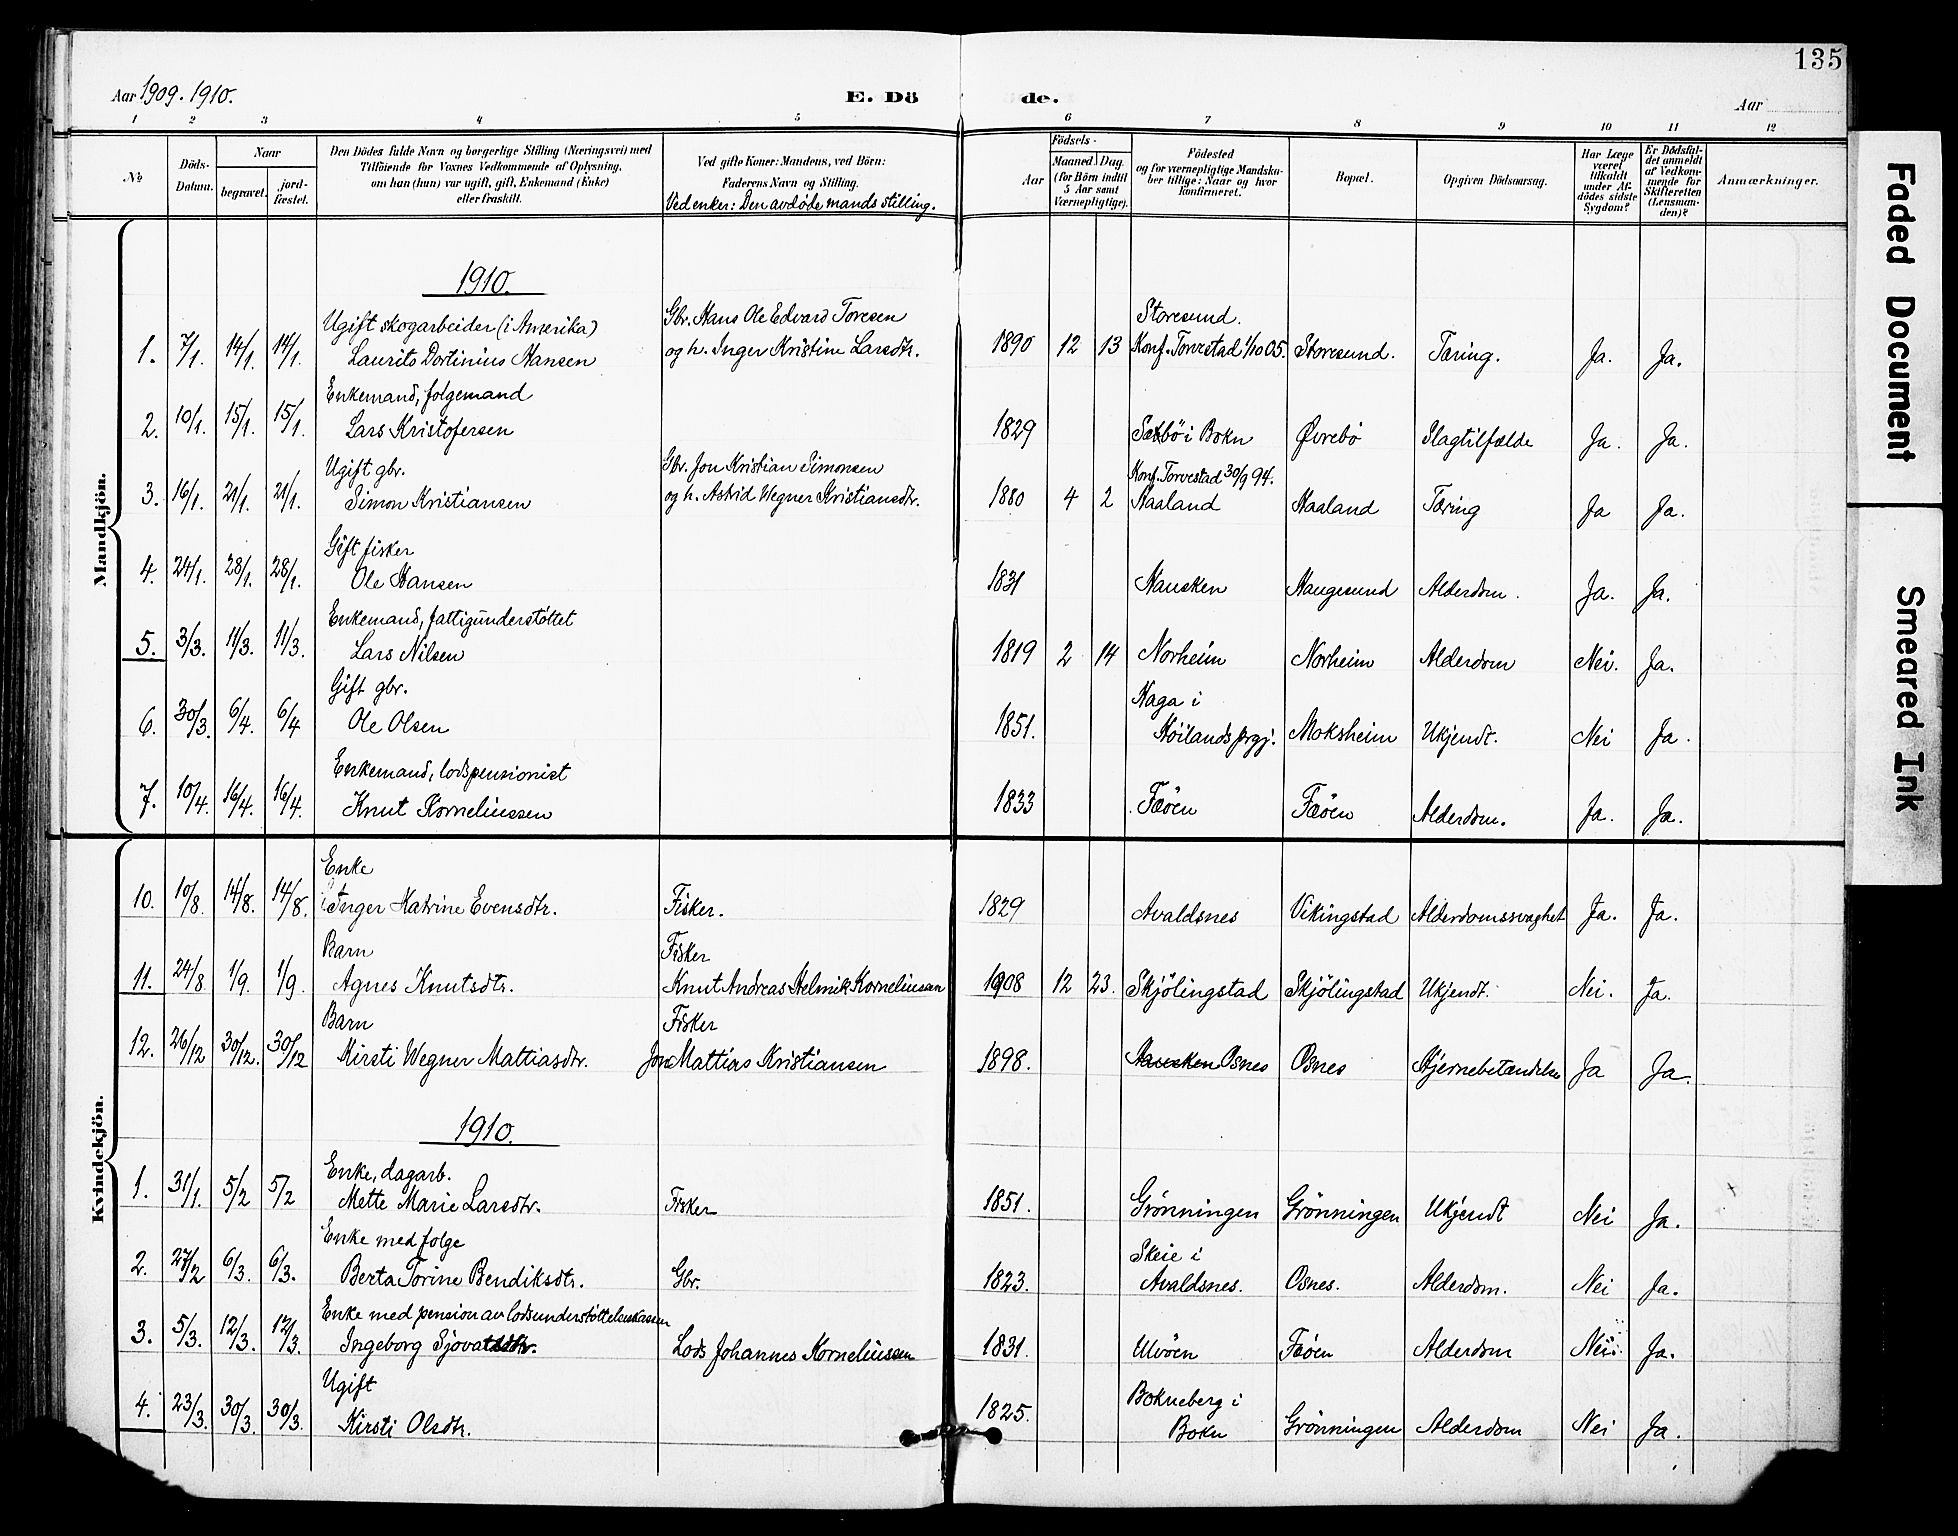 135
Aar 1909. 1910.
E. Dö de.
Aar
1 2 3 4 5 6 7 8 9 10 11 12
No
Döds-Datum.
Naar
begravet.
jord-fæstet.
Den Dödes fulde Navn og borgerlige Stilling (Næringsvei) med
Tilföiende for Voxnes Vedkommende af Oplysning,
om han (hun) var ugift, gift, Enkemand (Enke)
eller fraskilt.
Ved gifte Koner: Mandens, ved Börn:
Faderens Navn og Stilling.
Ved enker: Den avdöde mands stilling.
Födsels-
Aar
Maaned
Dag
(for Börn indtil
5 Aar samt
Værnepligtige).
Födested
og for værnepligtige Mandska-
ber tillige: Naar og hvor
konfirmeret.
Bopæl.
Opgiven Dödsaarsag.
Har Læge
været
tilkaldt
under Af-
dödes sidste
Sygdom?
Er Dödsfal-
det anmeldt
af Vedkom-
mende for
Skifteretten
(Lensman-
den)?
Anmærkninger.
Mandkjön.
1910.
Ugift skogarbeider (i Amerika) Gbr. Hans Ole Edvard Toresen Storesund.
1. 7/1. 14/1. 14/1. Laurits Dortinius Hansen og h. Inger Kristine Larsdtr. 1890 12 13 Konf. Torvestad 1/10 05. Storesund. Tæring. Ja. Ja.
Enkemand, folgemand
2. 10/1. 15/1. 15/1. Lars Kristofersen 1829 Sæbö i Bokn Øvrebö Slagtilfælde Ja. Ja.
Ugift gbr. Gbr. Jon Kristian Simonsen Konf. Torvestad 30/9 94.
3. 16/1. 21/1. 21/1. Simon Kristiansen og h. Astrid Wegner Kristiansdtr. 1880 4 2 Haaland Haaland Tæring Ja Ja.
Gift fisker
4. 24/1. 28/1. 28/1. Ole Hansen 1831 Hausken Haugesund Alderdom. Ja. Ja.
Enkemand, fattigunderstöttet
5. 3/3. 11/3. 11/3. Lars Nilsen 1819 2 14 Norheim Norheim Alderdom Nei. Ja.
Gift gbr. Haga i
6. 30/3. 6/4. 6/4 Ole Olsen 1851. Höilands prgj. Moksheim Ukjendt. Nei Ja.
Enkemand, lodspensionist
7. 10/4. 16/4. 16/4. Knut Korneliussen 1833 Fæöen Fæöen Alderdom. Ja. Ja.
Kvindekjön.
Enke
10. 10/8. 14/8. 14/8. Inger Katrine Evensdtr. Fisker. 1829 Avaldsnes Vikingstad Alderdomssvaghet Ja. Ja.
Barn Fisker
11. 24/8 1/9. 1/9 Agnes Knutsdtr. Knut Andreas Helmik Korneliussen 1908 12 23. Skjölingstad Skjölingstad Ukjendt. Nei. Ja.
Barn Fisker
12. 26/12 30/12. 30/12 Kirsti Wegner Mattiasdtr. Jon Mattias Kristiansen 1898. Hausken Osnes Osnes Hjernebetændelse Ja Ja.
1910.
Enke, dagarb.
1. 31/1. 5/2 5/2 Mette Marie Larsdtr. Fisker 1851. Grönningen Grönningen Ukjendt Nei Ja.
Enke med folge Skeie i
2. 27/2 6/3. 6/3. Berta Torine Bendiksdtr. Gbr. 1823. Avaldsnes. Osnes. Alderdom. Nei Ja.
Enke med pension av lodsunderstöttelseskassen
3. 5/3. 12/3. 12/3. Ingeborg Lods Johannes Korneliussen 1831. Ulvöen Fæöen Alderdom Nei. Ja.
Ugift Bokneberg i
4. 23/3. 30/3. 30/3. Kirsti Olsdtr. 1825. Bokn Grönningen Alderdom Nei Ja.
Faded Document
Smeared Ink